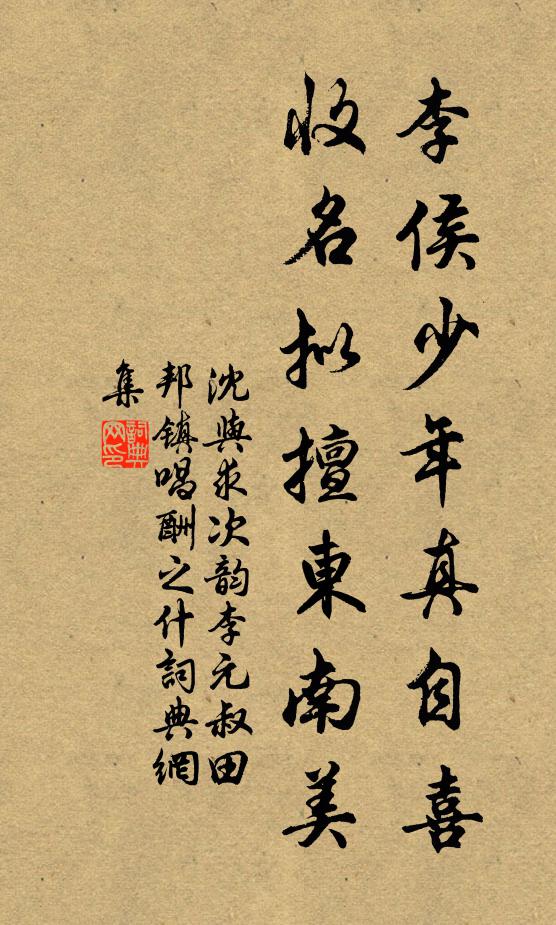 李侯少年真自喜
收名拟擅東南美
沈與求次韵李元叔田
邦镇唱酬之什詞典網
集
詞典网印